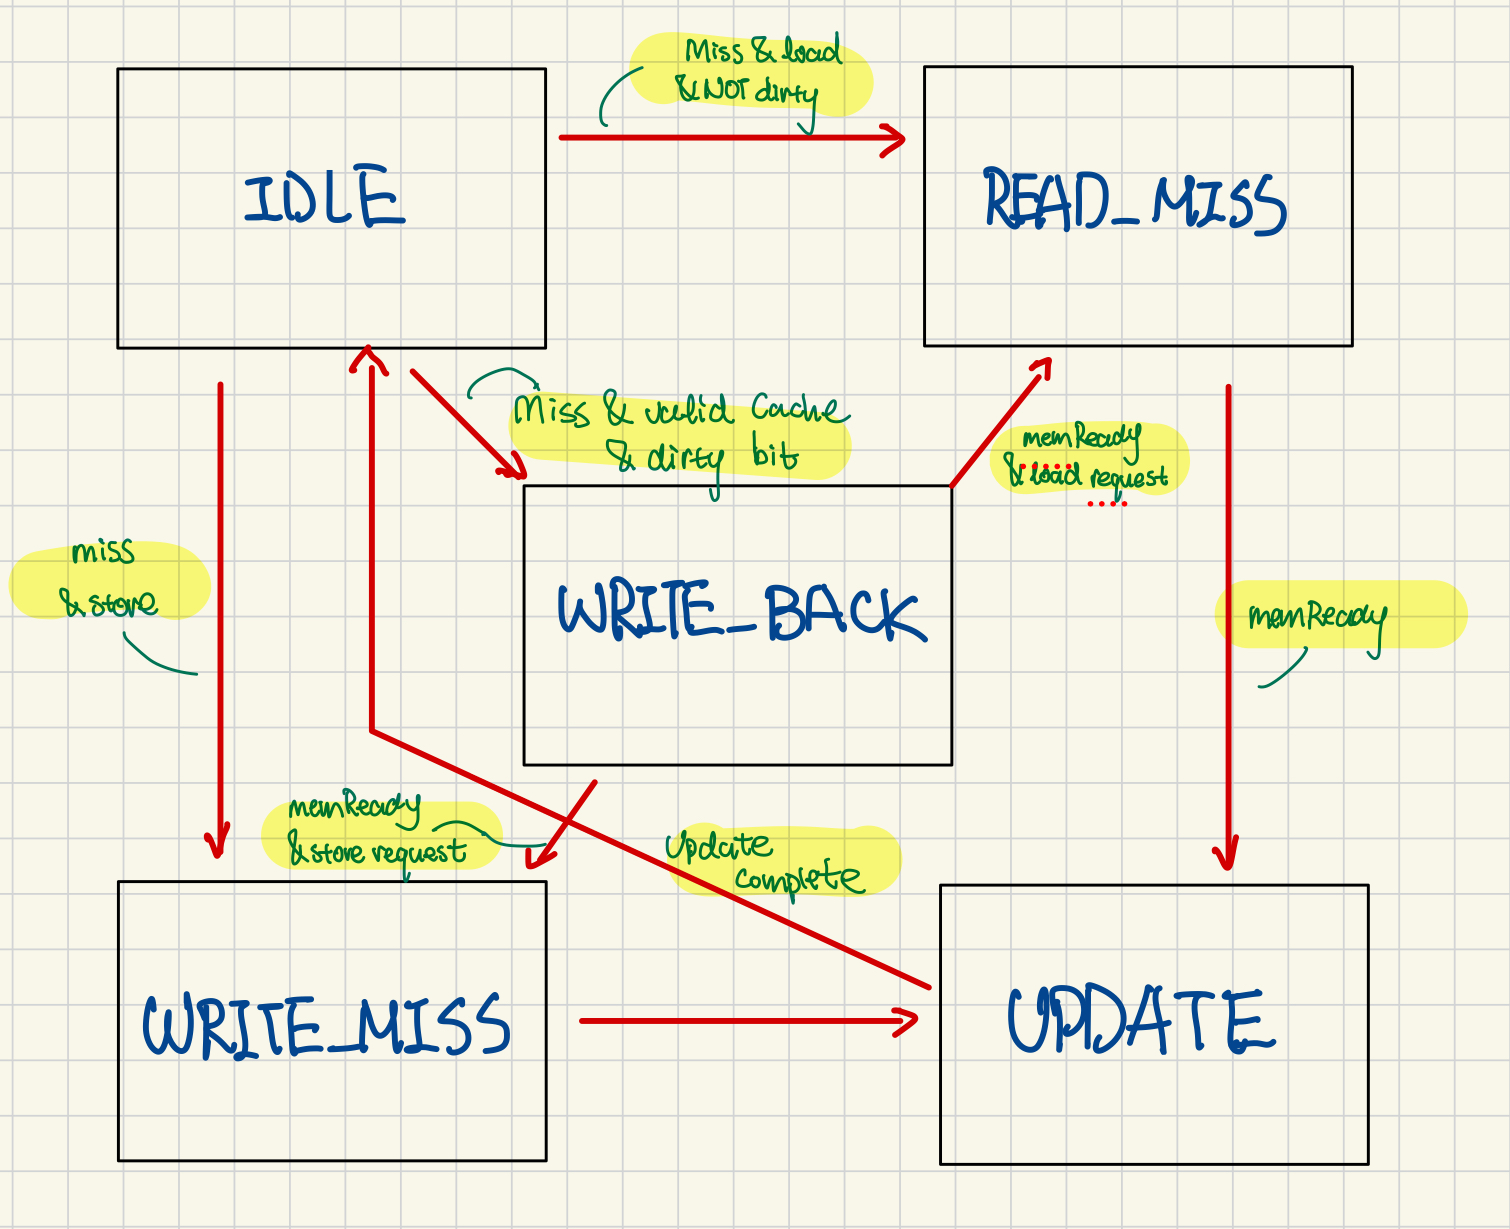 Miss & load
& NOT dirty
IDLE
READ_MISS
Miss & valid Cache
& dirty bit
memReady
& load request
miss
& store
WRITE_BACK
memReady
memReady
& store request
Update
complete
WRITE_MISS
UPDATE